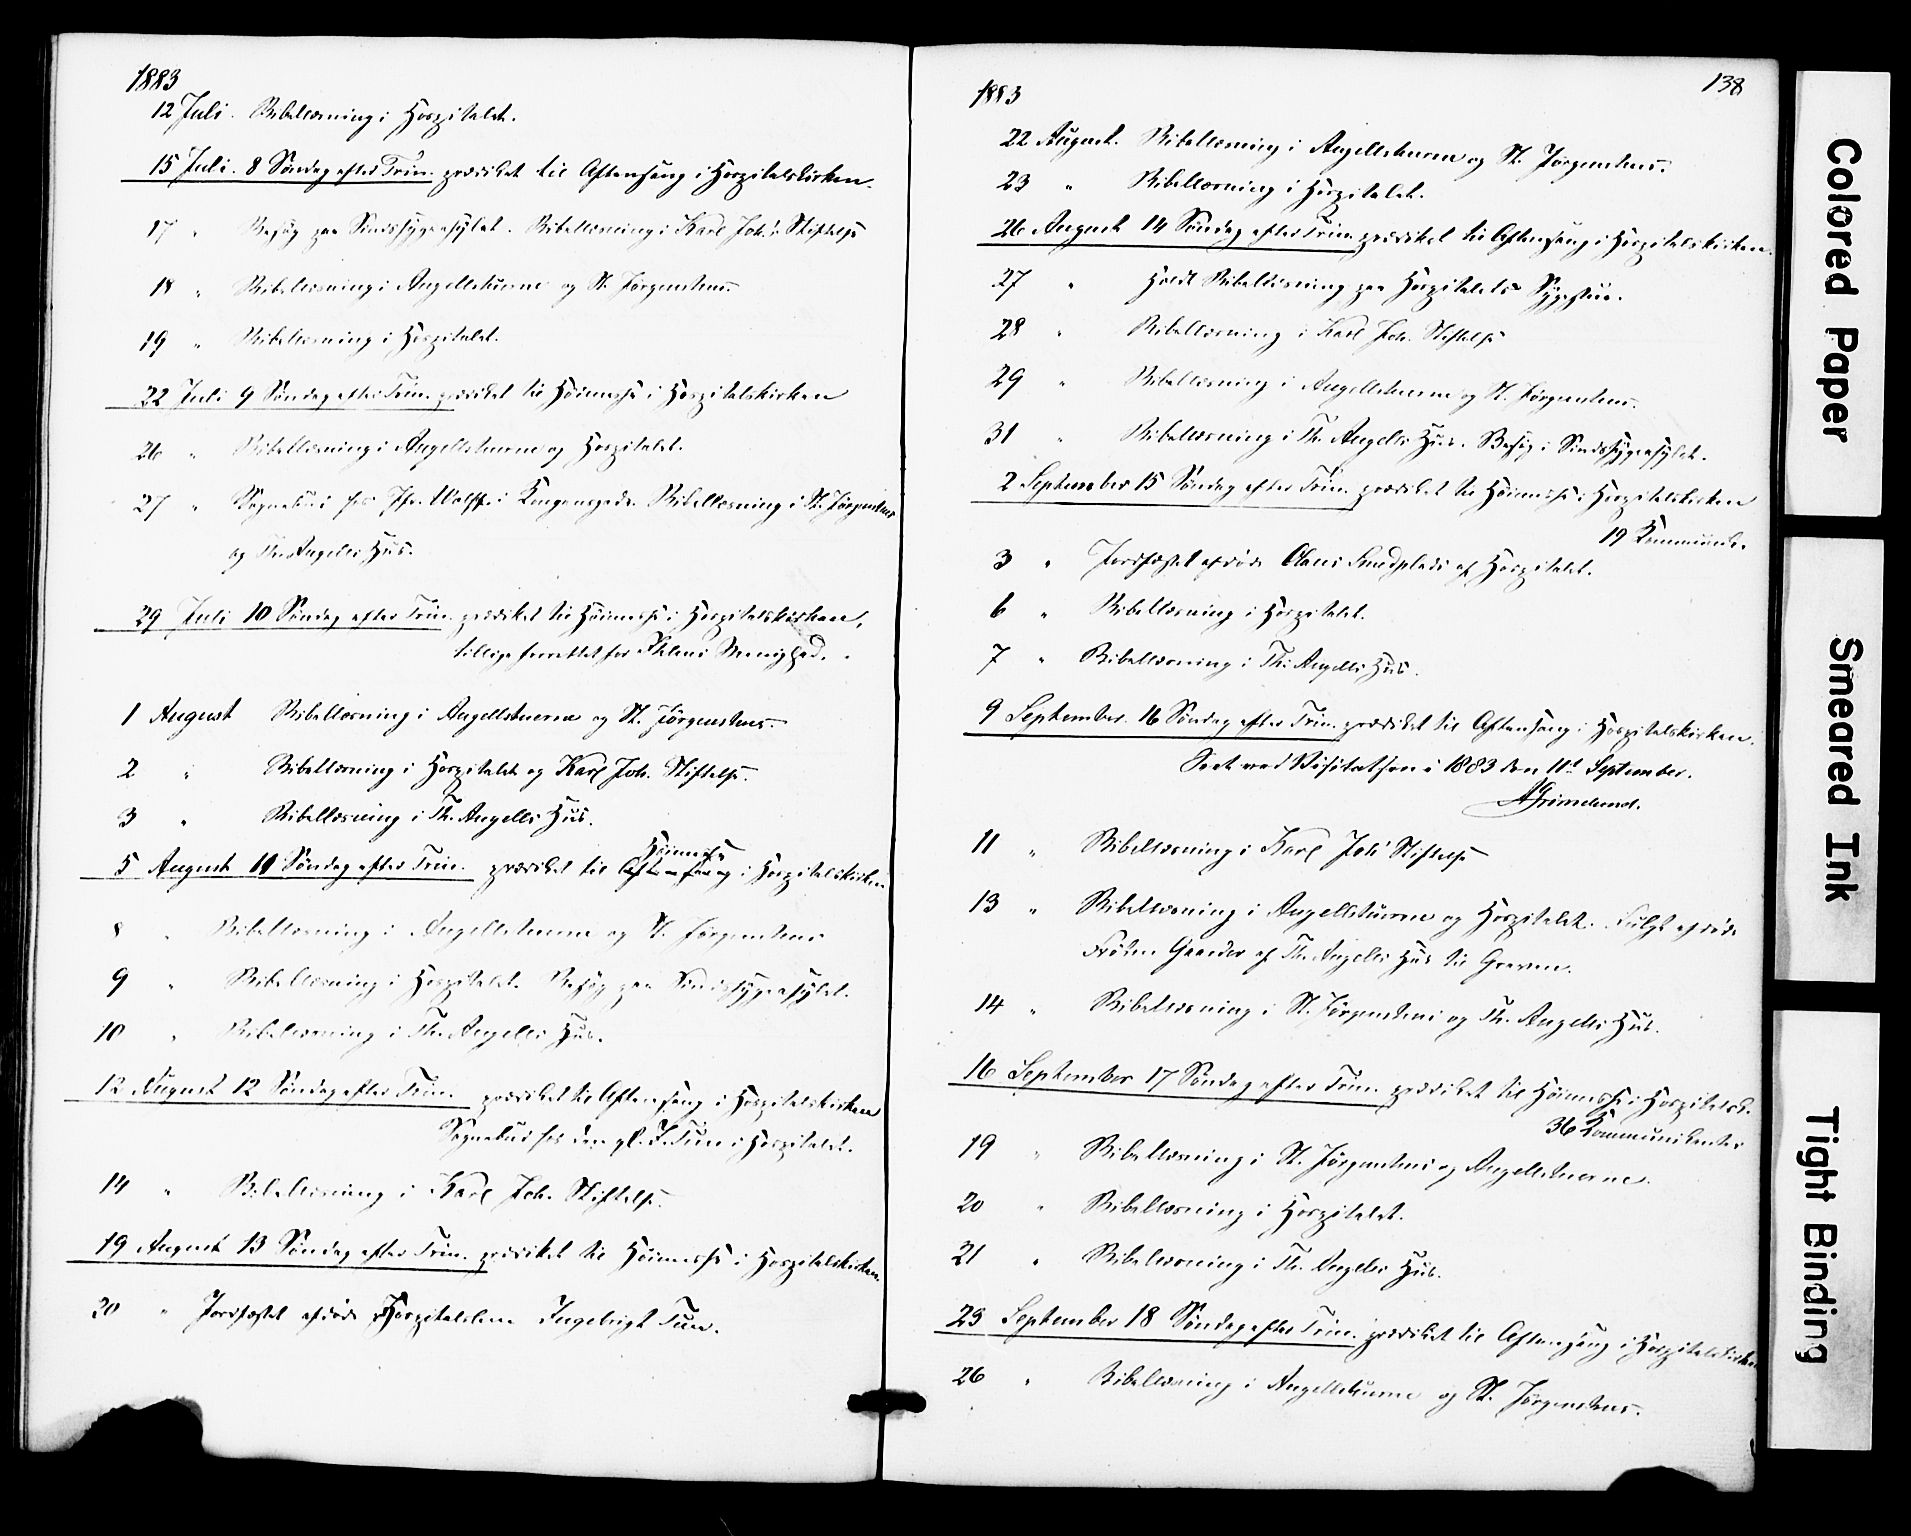 1883
12 Juli. Bibellæsning i Hospitalet.
15 Juli. 8 Søndag efter Trin. prædiket til Aftensang i Hospitalskirken.
17 " Besøg paa Sindssygeasylet. Bibellæsning i Karl Joh.s Stiftelse
18 " Bibellæsning i Angellstuerne og St. Jørgenshus.
19 " Bibellæsning i Hospitalet.
22 Juli 9 Søndag efter Trin. prædiket til Høimesse i Hospitalskirken
26 " Bibellæsning i Angellstuerne og Hospitalet.
27 " Sognebud hos Wolff i Kongensgade. Bibellæsning i St. Jørgenshus
og Th. Angells Hus.
29 Juli 10 Søndag efter Trin. prædiket til Høimesse i Hospitalskirken,
tillige forrettet for Ihlens Menighed.
1 August Bibellæsning i Angellstuerne og St. Jørgenshus.
2 " Bibellæsning i Hospitalet og Karl Joh. Stiftelse.
3 " Bibellæsning i Th. Angells Hus.
Høimesse
5 August 11 Søndag efter Trin. prædiket til Aftensang i Hospitalskirken
8 " Bibellæsning i Angellstuerne og St. Jørgenshus
9 " Bibellæsning i Hospitalet. Besøg paa Sindssygeasylet.
10 " Bibellæsning i Th. Angells Hus.
12 August 12 Søndag efter Trin. prædiket til Aftensang i Hospitalskirken
Sognebud hos den gl. I. Tun i Hospitalet.
14 " Bibellæsning i Karl Joh. Stiftelse.
19 August 13 Søndag efter Trin. prædiket til Høimesse i Hospitalskirken.
20 " Jordfæstet afdøde Hospitalslem Ingebrigt Tun.
1883
138
22 August. Bibellæsning i Angellstuerne og St. Jørgenshus.
23 " Bibellæsning i Hospitalet.
26 August 14 Søndag efter Trin. prædiket til Aftensang i Hospitalskirken.
27 " Holdt Bibellæsning paa Hospitalets Sygestue.
28 " Bibellæsning i Karl Joh. Stiftelse
29 " Bibellæsning i Angellstuerne og St. Jørgenshus.
31 " Bibellæsning i Th. Angells Hus. Besøg i Sindssygeasylet.
2 September 15 Søndag efter Trin. prædiket til Høimesse i Hospitalskirken
19 Kommunik.
3 " Jordfæstet afdøde Claus af Hospitalet.
6 " Bibellæsning i Hospitalet.
7 " Bibellæsning i Th. Angells Hus.
9 September. 16 Søndag efter Trin. prædiket til Aftensang i Hospitalskirken.
Seet ved Visitatsen i 1883 den 11te September.
Grimelund.
11 " Bibellæsning i Karl Joh. Stiftelse
13 " Bibellæsning i Angellstuerne og Hospitalet. Fulgt afdøde
Frøken af Th. Angells Hus til Graven.
14 " Bibellæsning i St. Jørgenshus og Th. Angells Hus.
16 September 17 Søndag efter Trin. prædiket til Høimesse i Hospitalsk.
36 Kommunikanter
19 " Bibellæsning i St. Jørgenshus og Angellstuerne.
20 " Bibellæsning i Hospitalet.
21 " Bibellæsning i Th. Angells Hus.
23 September 18 Søndag efter Trin. prædiket til Aftensang i Hospitalskirken
26 " Bibellæsning i Angellstuerne og St. Jørgenshus.
Colored Paper
Smeared Ink
Tight Binding